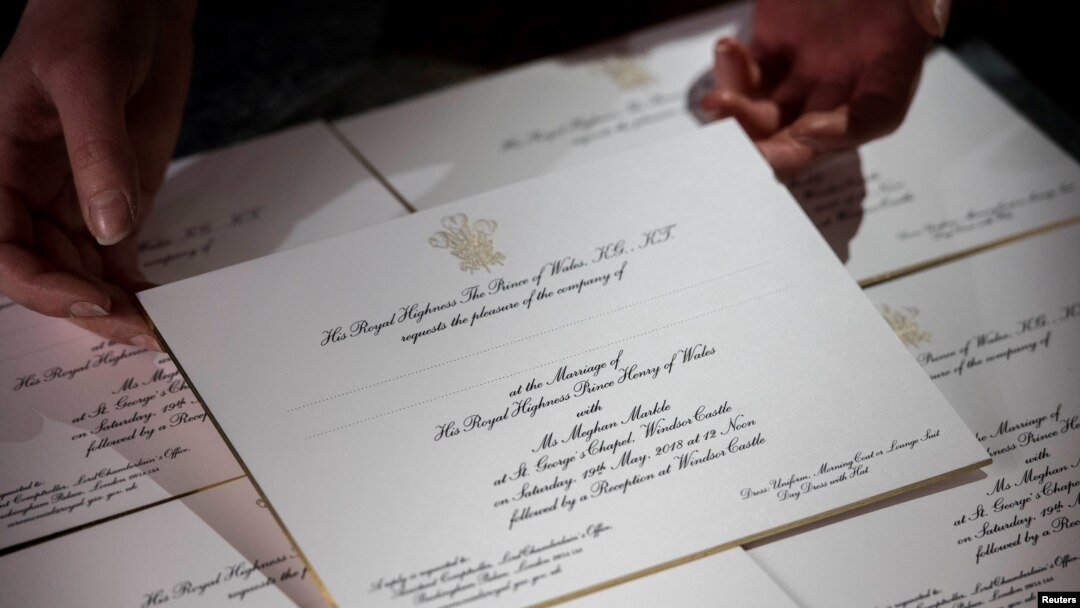 His Royal Highness The Prince of Wales, K.G., K.T.
requests the pleasure of the company of
at the Marriage of
His Royal Highness Prince Henry of Wales
with
Ms Meghan Markle
at St. George's Chapel, Windsor Castle
on Saturday, 19th May, 2018 at 12 Noon
followed by a Reception at Windsor Castle
A reply is requested to:
Comptroller, Lord Chamberlain's Office,
Buckingham Palace, London SW1A 1AA
Dress: Uniform, Morning Coat or Lounge Suit
Day Dress with Hat
Wales, K.G., K.T.
company of
His Royal Highness
Ms Megh
at St. George's Cha
on Saturday, 19th
followed by a Recep
Lord Chamberlain's Office,
Comptroller,
Buckingham Palace, London SW1A 1AA
His Royal Highness
requests the p
His Royal Highness The Pr
requests the pleasure
Prince of Wales, K.G., K
of the company of
Marriage of
with
Ms Meghan
at St. George's
on Saturday, 19th
followed by
Reuters